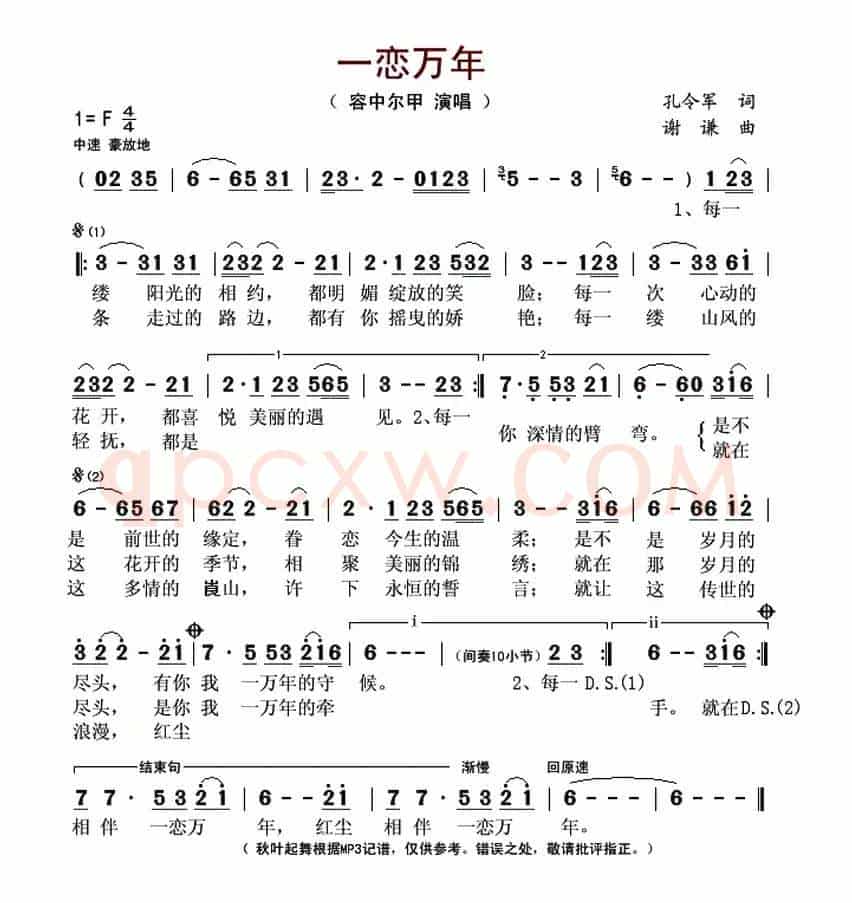 一恋万年
（ 容中尔甲 演唱 ）
孔令军 词
1= F 4/4
谢 谦 曲
中速 豪放地
( 02 35 | 6 - 65 31 | 23· 2 - 0123 | 3 5 - - 3 | 5 6 - - ) 1 23 |
1、每一
𝄋(1)
‖: 3 - 31 31 | 232 2 - 21 | 2· 1 23 532 | 3 - - 123 | 3 - 33 61̇ |
缕 阳光的 相约， 都明 媚绽放的笑 脸；每一 次 心动的
条 走过的 路边， 都有 你摇曳的娇 艳；每一 缕 山风的
1 2
232 2 - 21 | 2· 1 23 565 | 3 - - 23 :‖ 7· 5 53 21 | 6 - 60 31̇6 |
花开， 都喜 悦美丽的遇 见。2、每一
轻抚， 都是 你深情的臂 弯。 { 是不
就在
𝄋(2)
qpcxw.COM
6 - 65 67 | 62 2 - 21 | 2· 123 565 | 3 - - 31̇6 | 6 - 66 1̇2̇ |
是 前世的 缘定，眷 恋今生的温 柔；是不 是 岁月的
这 花开的 季节，相 聚美丽的锦 绣；就在 那 岁月的
这 多情的 崀山，许 下永恒的誓 言；就让 这 传世的
i ii
3̇ 2̇ 2̇ - 2̇1̇ | 7· 5 53 2̇1̇6 | 6 - - - | (间奏10小节) 2 3 :‖ 6 - - 31̇6 :‖
尽头， 有你 我 一万年的守 候。 2、每一 D.S.(1)
尽头， 是你 我 一万年的牵 手。就在D.S.(2)
浪漫，红尘
结束句 渐慢 回原速
7 7· 53 2̇1̇ | 6 - - 2̇1̇ | 7 7· 53 2̇1̇ | 6 - - - | 6 - - - ‖
相伴 一恋万 年，红尘 相伴 一恋万 年。
（ 秋叶起舞根据MP3记谱，仅供参考。错误之处，敬请批评指正。）